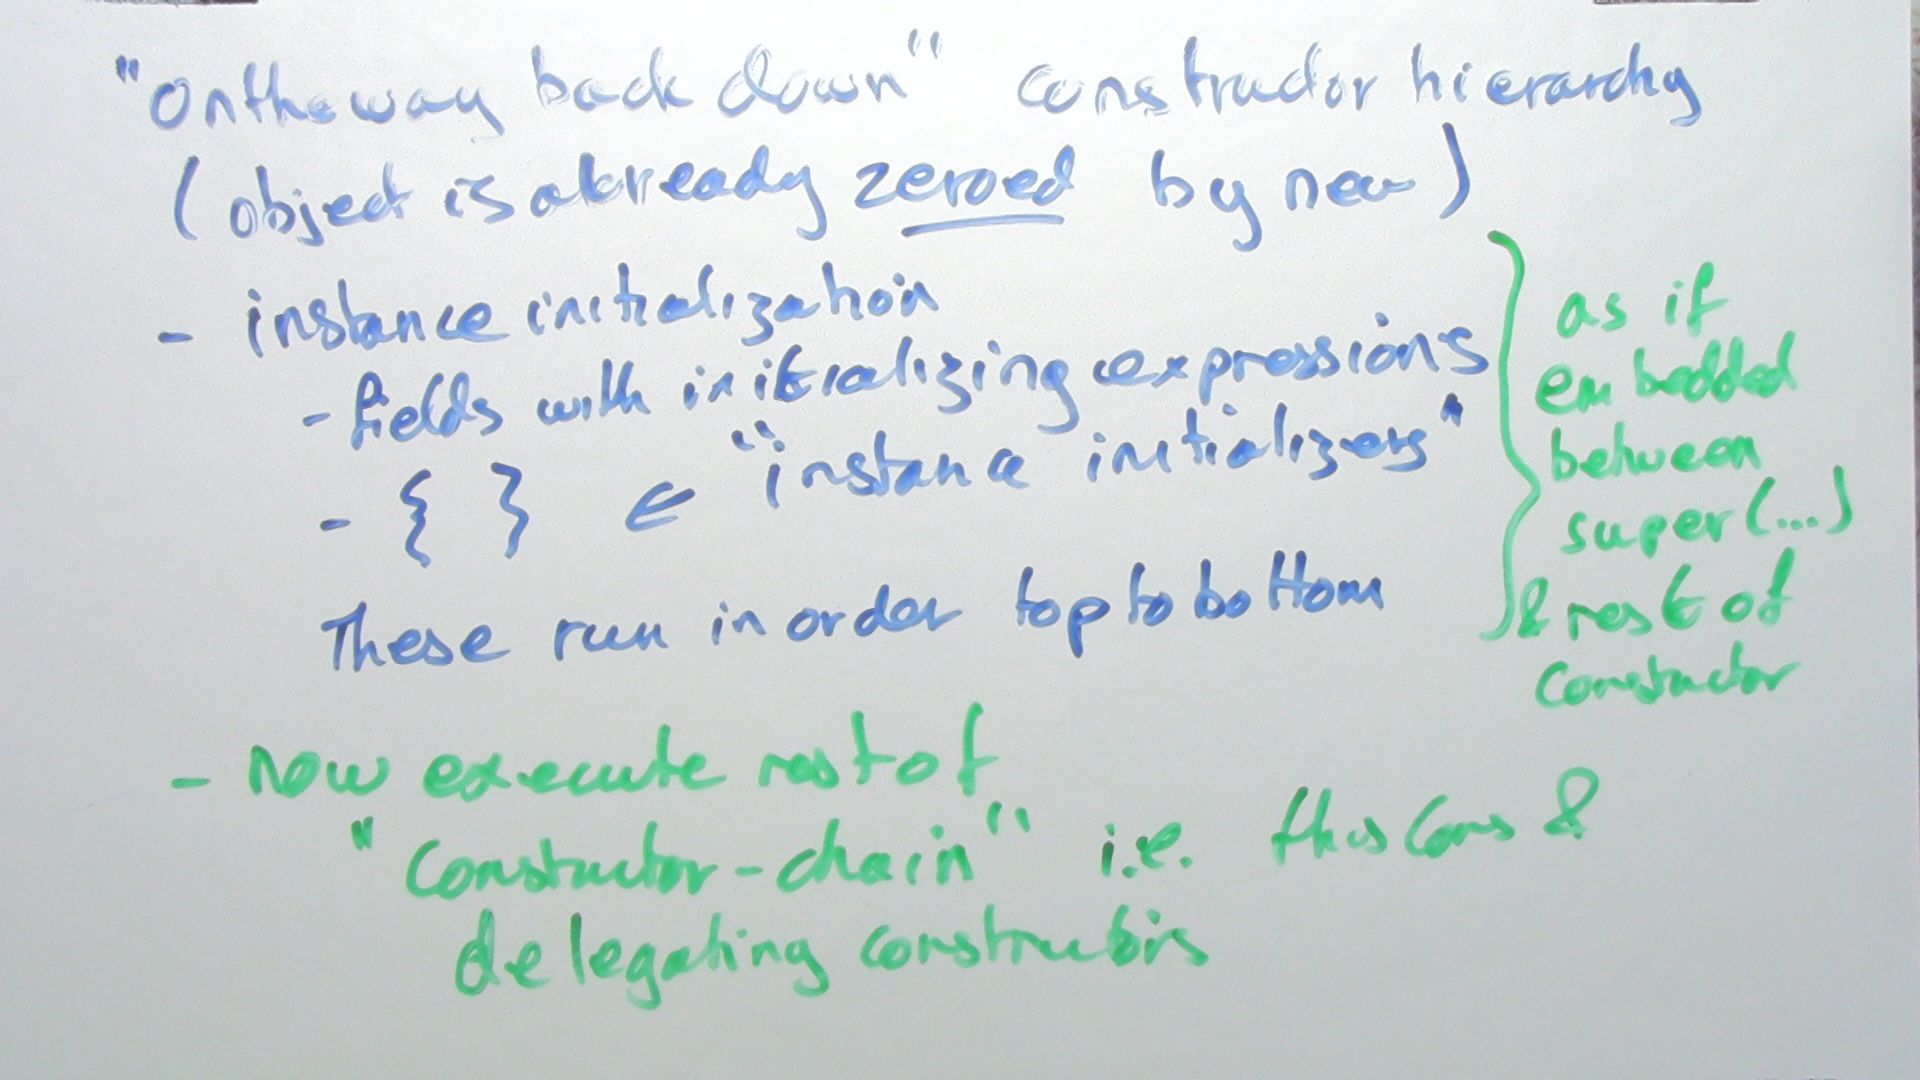 "On the way back down" constructor hierarchy
(object is already zeroed by new)
- instance initialization
- fields with initializing expressions
- { } ← "instance initializers"
These run in order top to bottom
as if
embedded
between
super(...)
& rest of
constructor
- now execute rest of
"constructor-chain" i.e. this cons &
delegating constructors